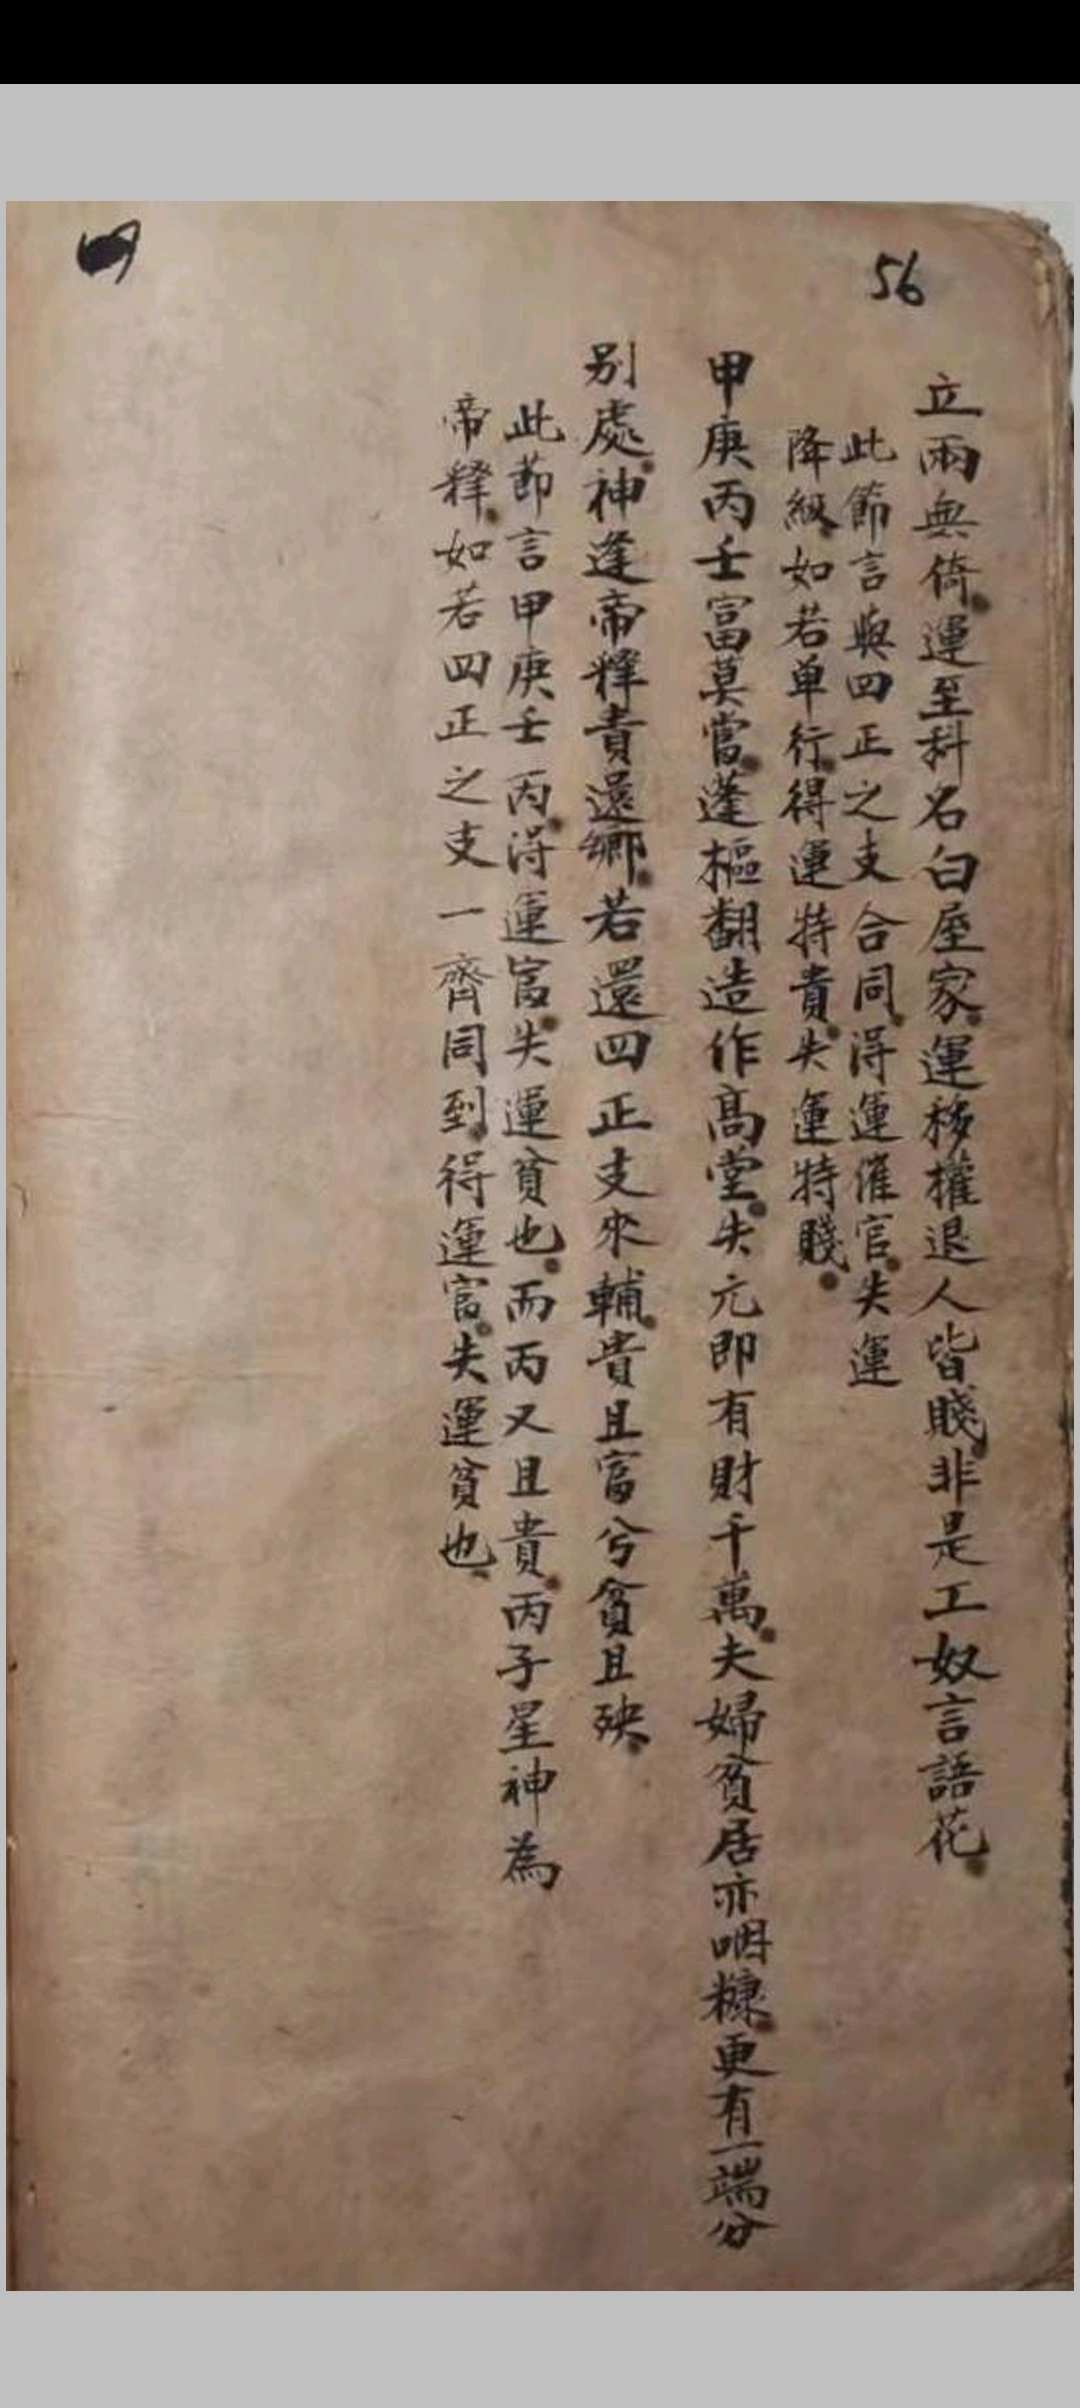 56
立兩無倚。運至科名白屋家。運移權退人皆賤。非是工奴言語花。
此節言與四正之支合同。得運催官。失運
降級。如若单行。得運特貴。失運特賤。
甲庚丙壬富莫當。蓬樞翻造作高堂。失元即有財千萬。夫婦貧居亦咽糠。更有一端分
别處。神逢帝释責還鄉。若還四正支來輔。貴且富兮貧且殃。
此節言甲庚壬丙。得運富。失運貧也。而丙又且貴。丙子星神為
帝释。如若四正之支一齊同到。得運富。失運貧也。